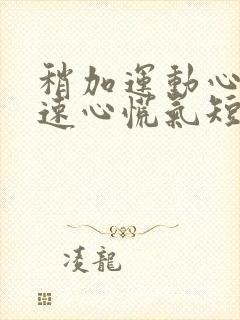 稍加運動心
速心慌氣短
凌龍